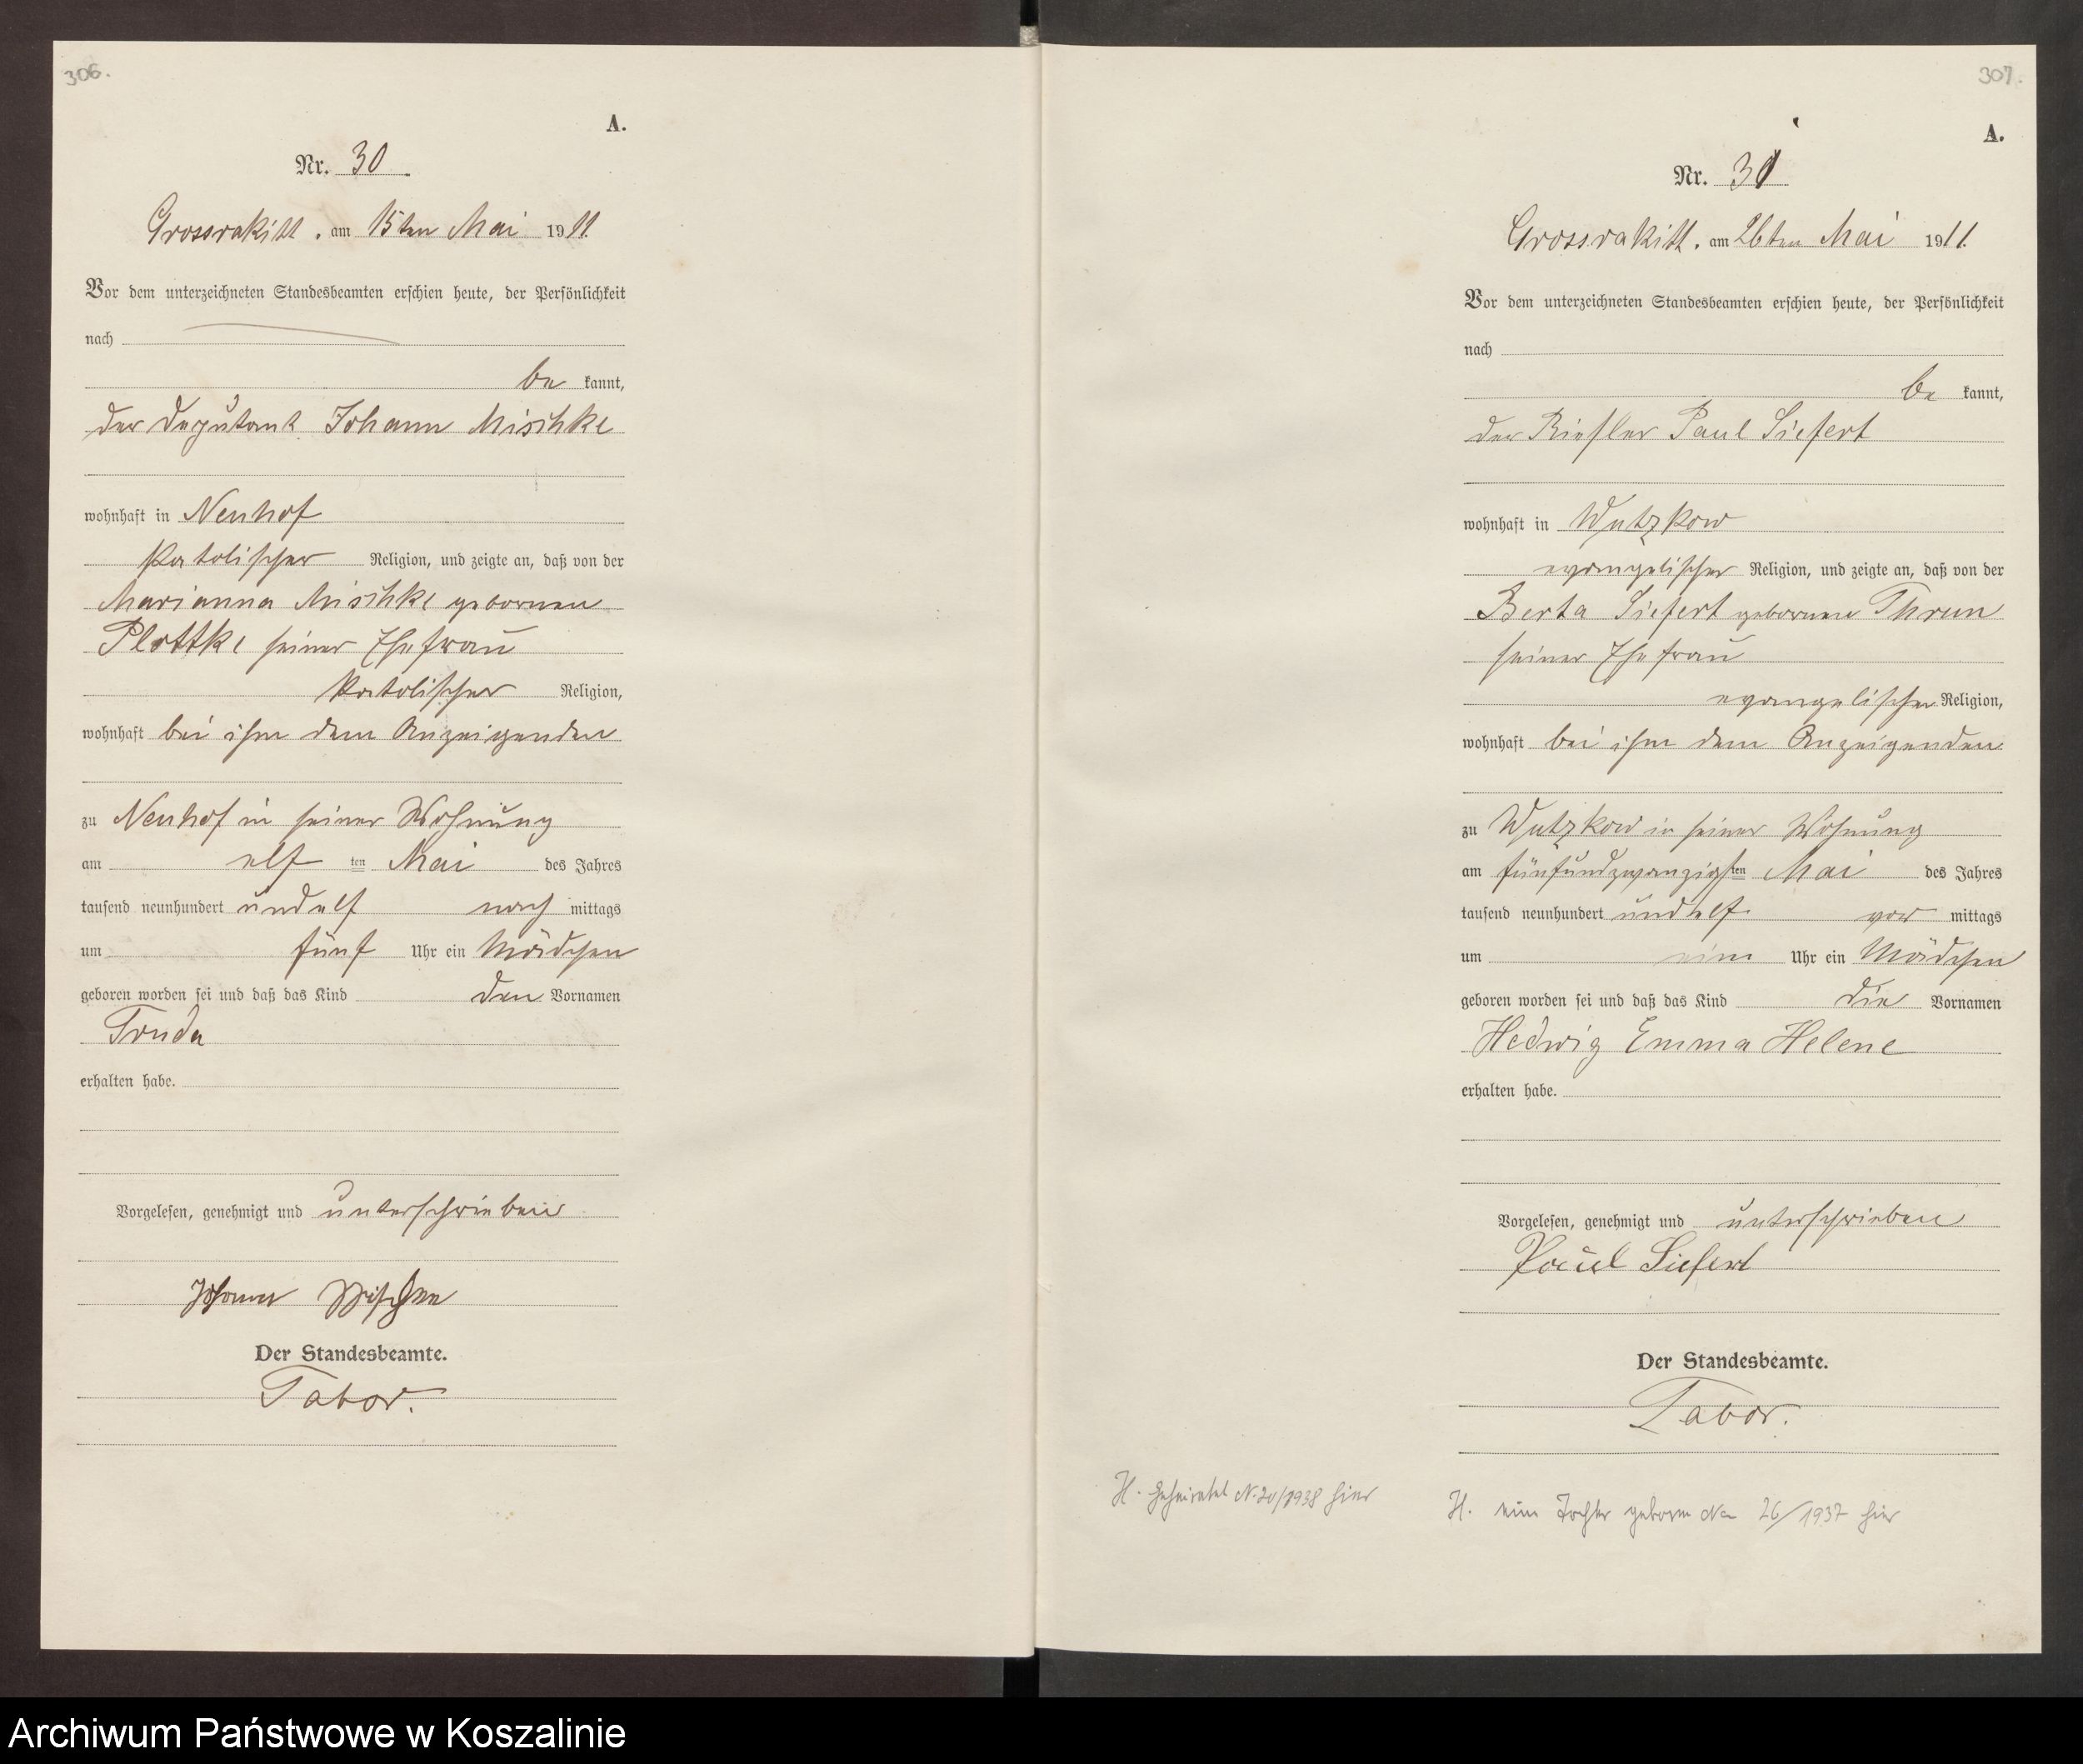 306.
A.
Nr. 30
Grossrakitt, am 15ten Mai 1911.
Vor dem unterzeichneten Standesbeamten erschien heute, der Persönlichkeit
nach
be kannt,
der Deputant Johann Mischke
wohnhaft in Neuhof
katolischer Religion, und zeigte an, daß von der
Marianna Mischke gebornen
Plottke seiner Ehefrau
katolischer Religion,
wohnhaft bei ihm dem Anzeigenden
zu Neuhof in seiner Wohnung
am elf ten Mai des Jahres
tausend neunhundert und elf nach mittags
um fünf Uhr ein Mädchen
geboren worden sei und daß das Kind den Vornamen
Truda
erhalten habe.
Vorgelesen, genehmigt und unterschrieben
Johann
Der Standesbeamte.
Tabor.
307.
A.
Nr. 31
Grossrakitt, am 26ten Mai 1911.
Vor dem unterzeichneten Standesbeamten erschien heute, der Persönlichkeit
nach
be kannt,
der Riesler Paul Siefert
wohnhaft in Wutzkow
evangelischer Religion, und zeigte an, daß von der
Berta Siefert gebornen Thrun
seiner Ehefrau
evangelischer Religion,
wohnhaft bei ihm dem Anzeigenden
zu Wutzkow in seiner Wohnung
am fünfundzwanzigsten Mai des Jahres
tausend neunhundert und elf vor mittags
um ein Uhr ein Mädchen
geboren worden sei und daß das Kind die Vornamen
Hedwig Emma Helene
erhalten habe.
Vorgelesen, genehmigt und unterschrieben
Paul Siefert
Der Standesbeamte.
Tabor.
H. Geheiratet N. 20/1938 hier
H. eine Tochter geboren No 26/1937 hier
Archiwum Państwowe w Koszalinie